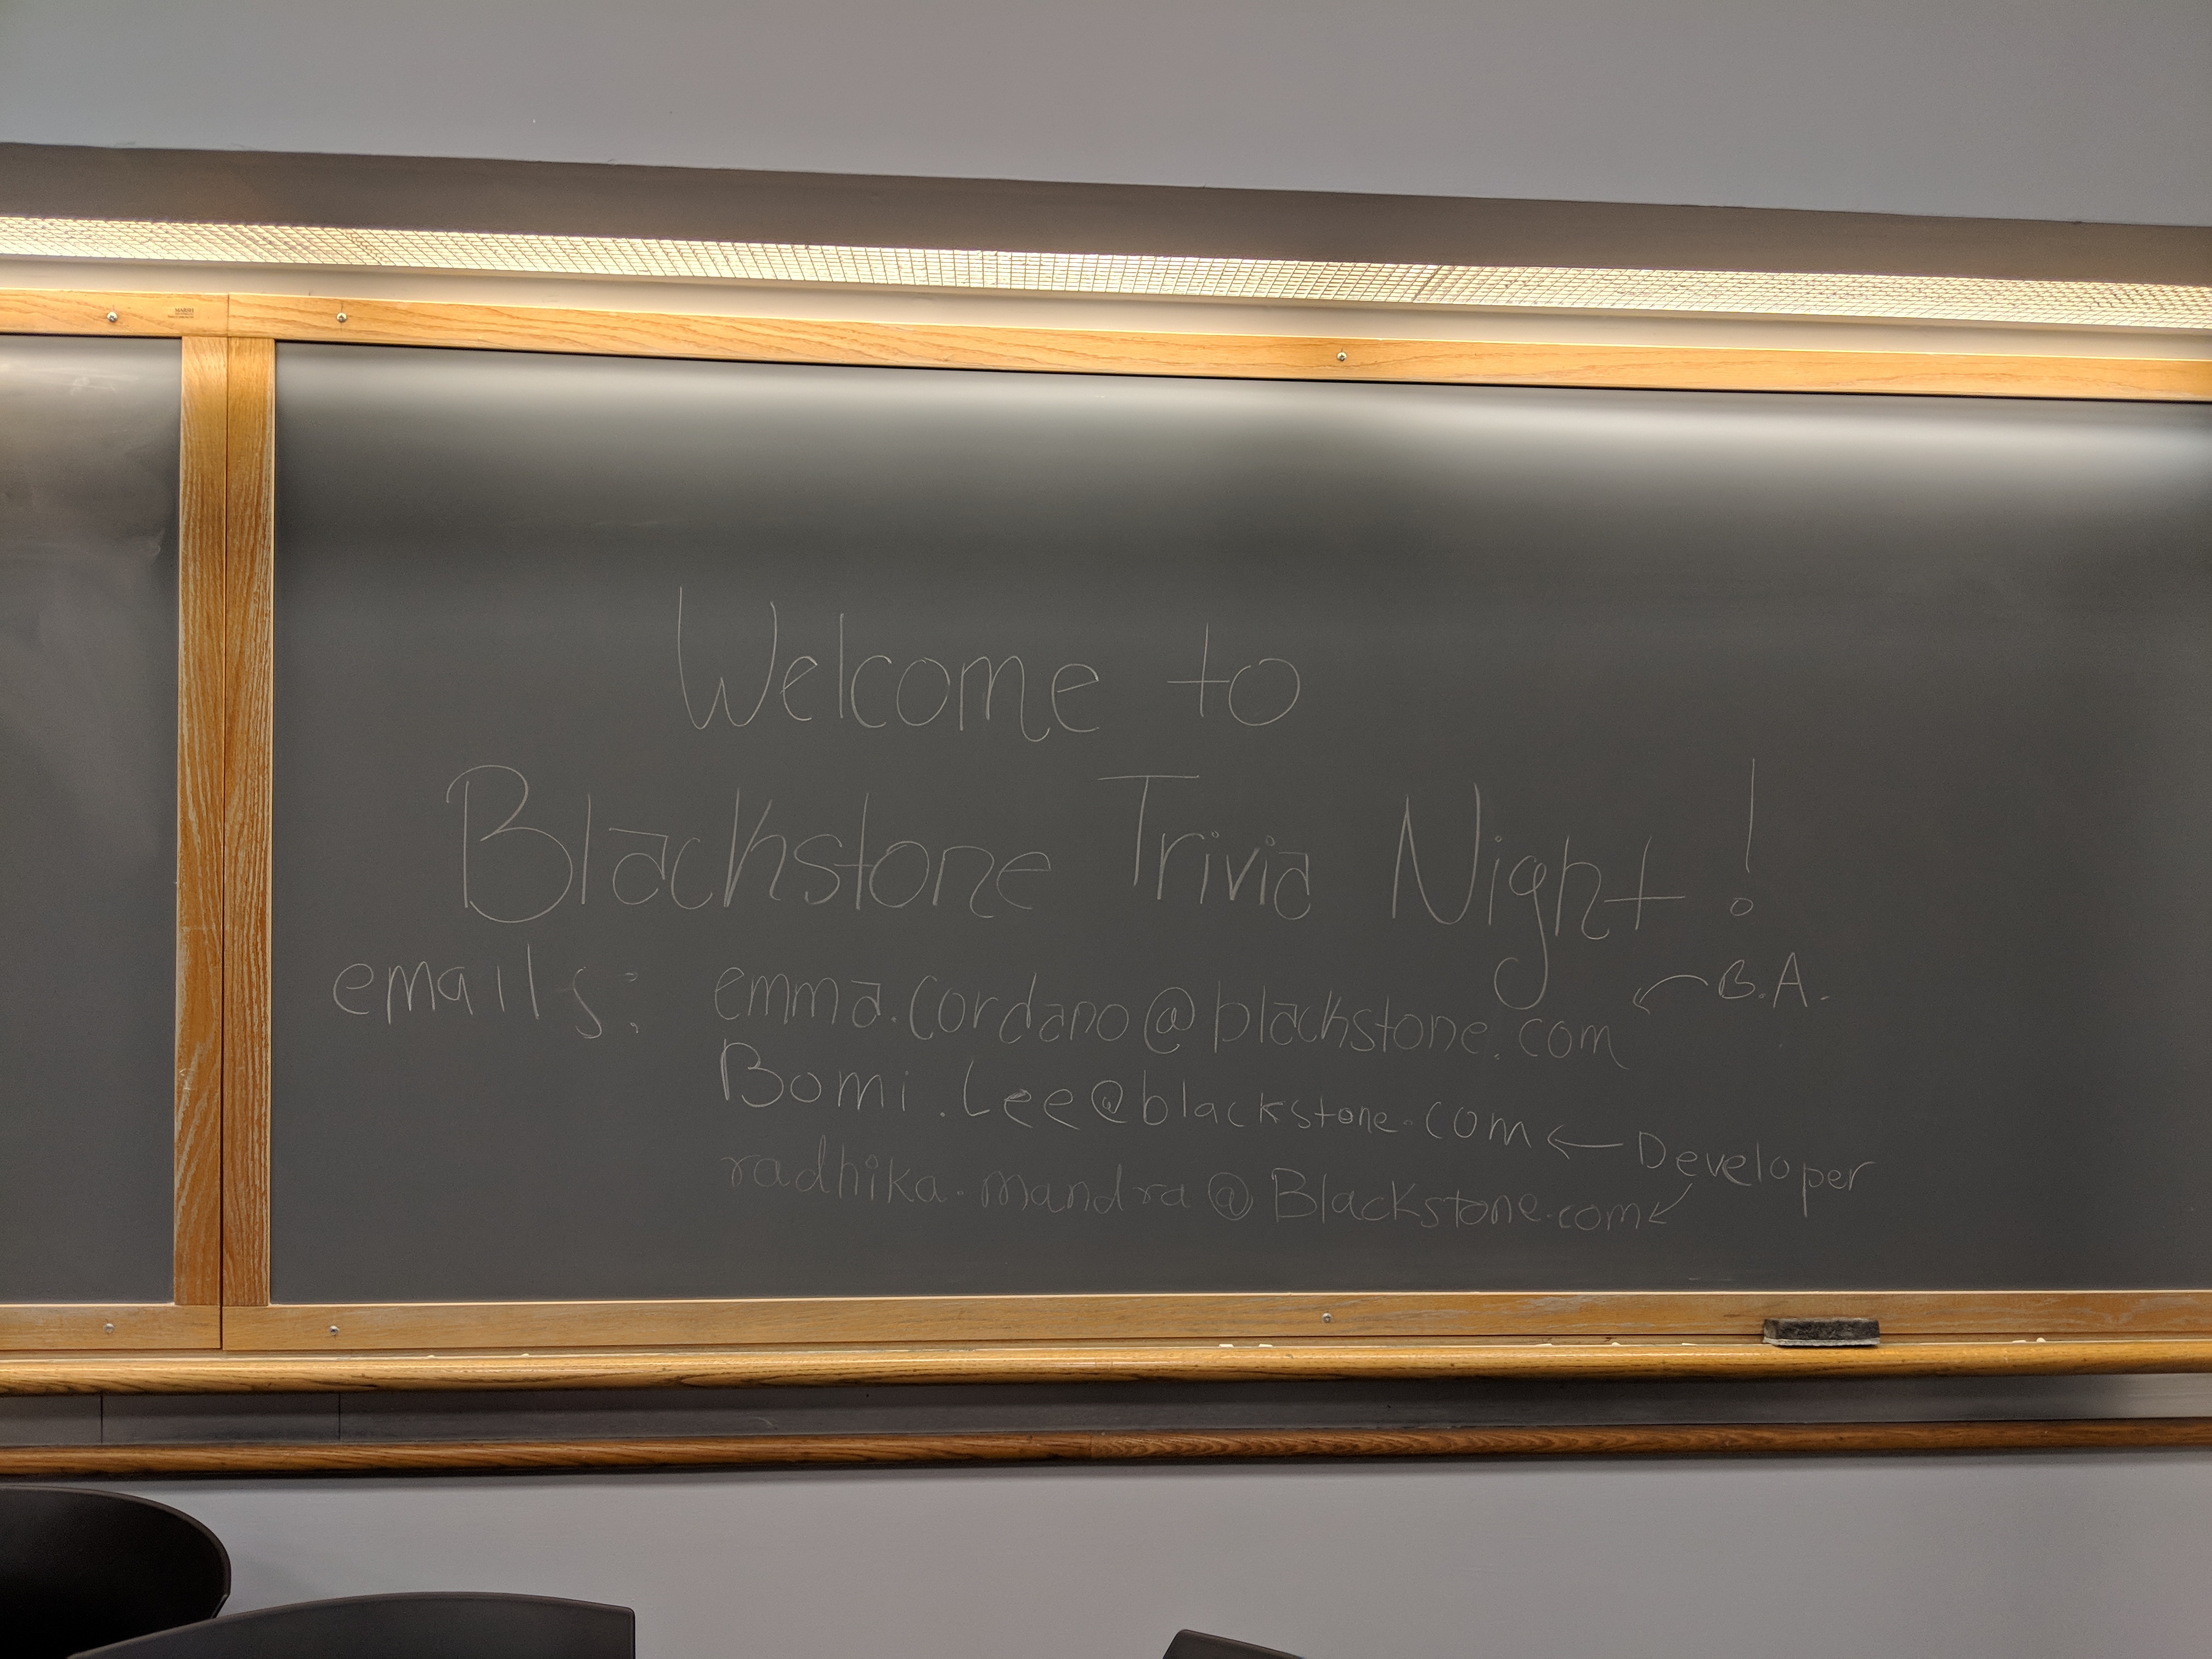 Welcome to
Blackstone Trivia Night!
emails: emma.cordano@blackstone.com ← B.A.
Bomi.Lee@blackstone.com ← Developer
radhika.mandra@Blackstone.com ↙